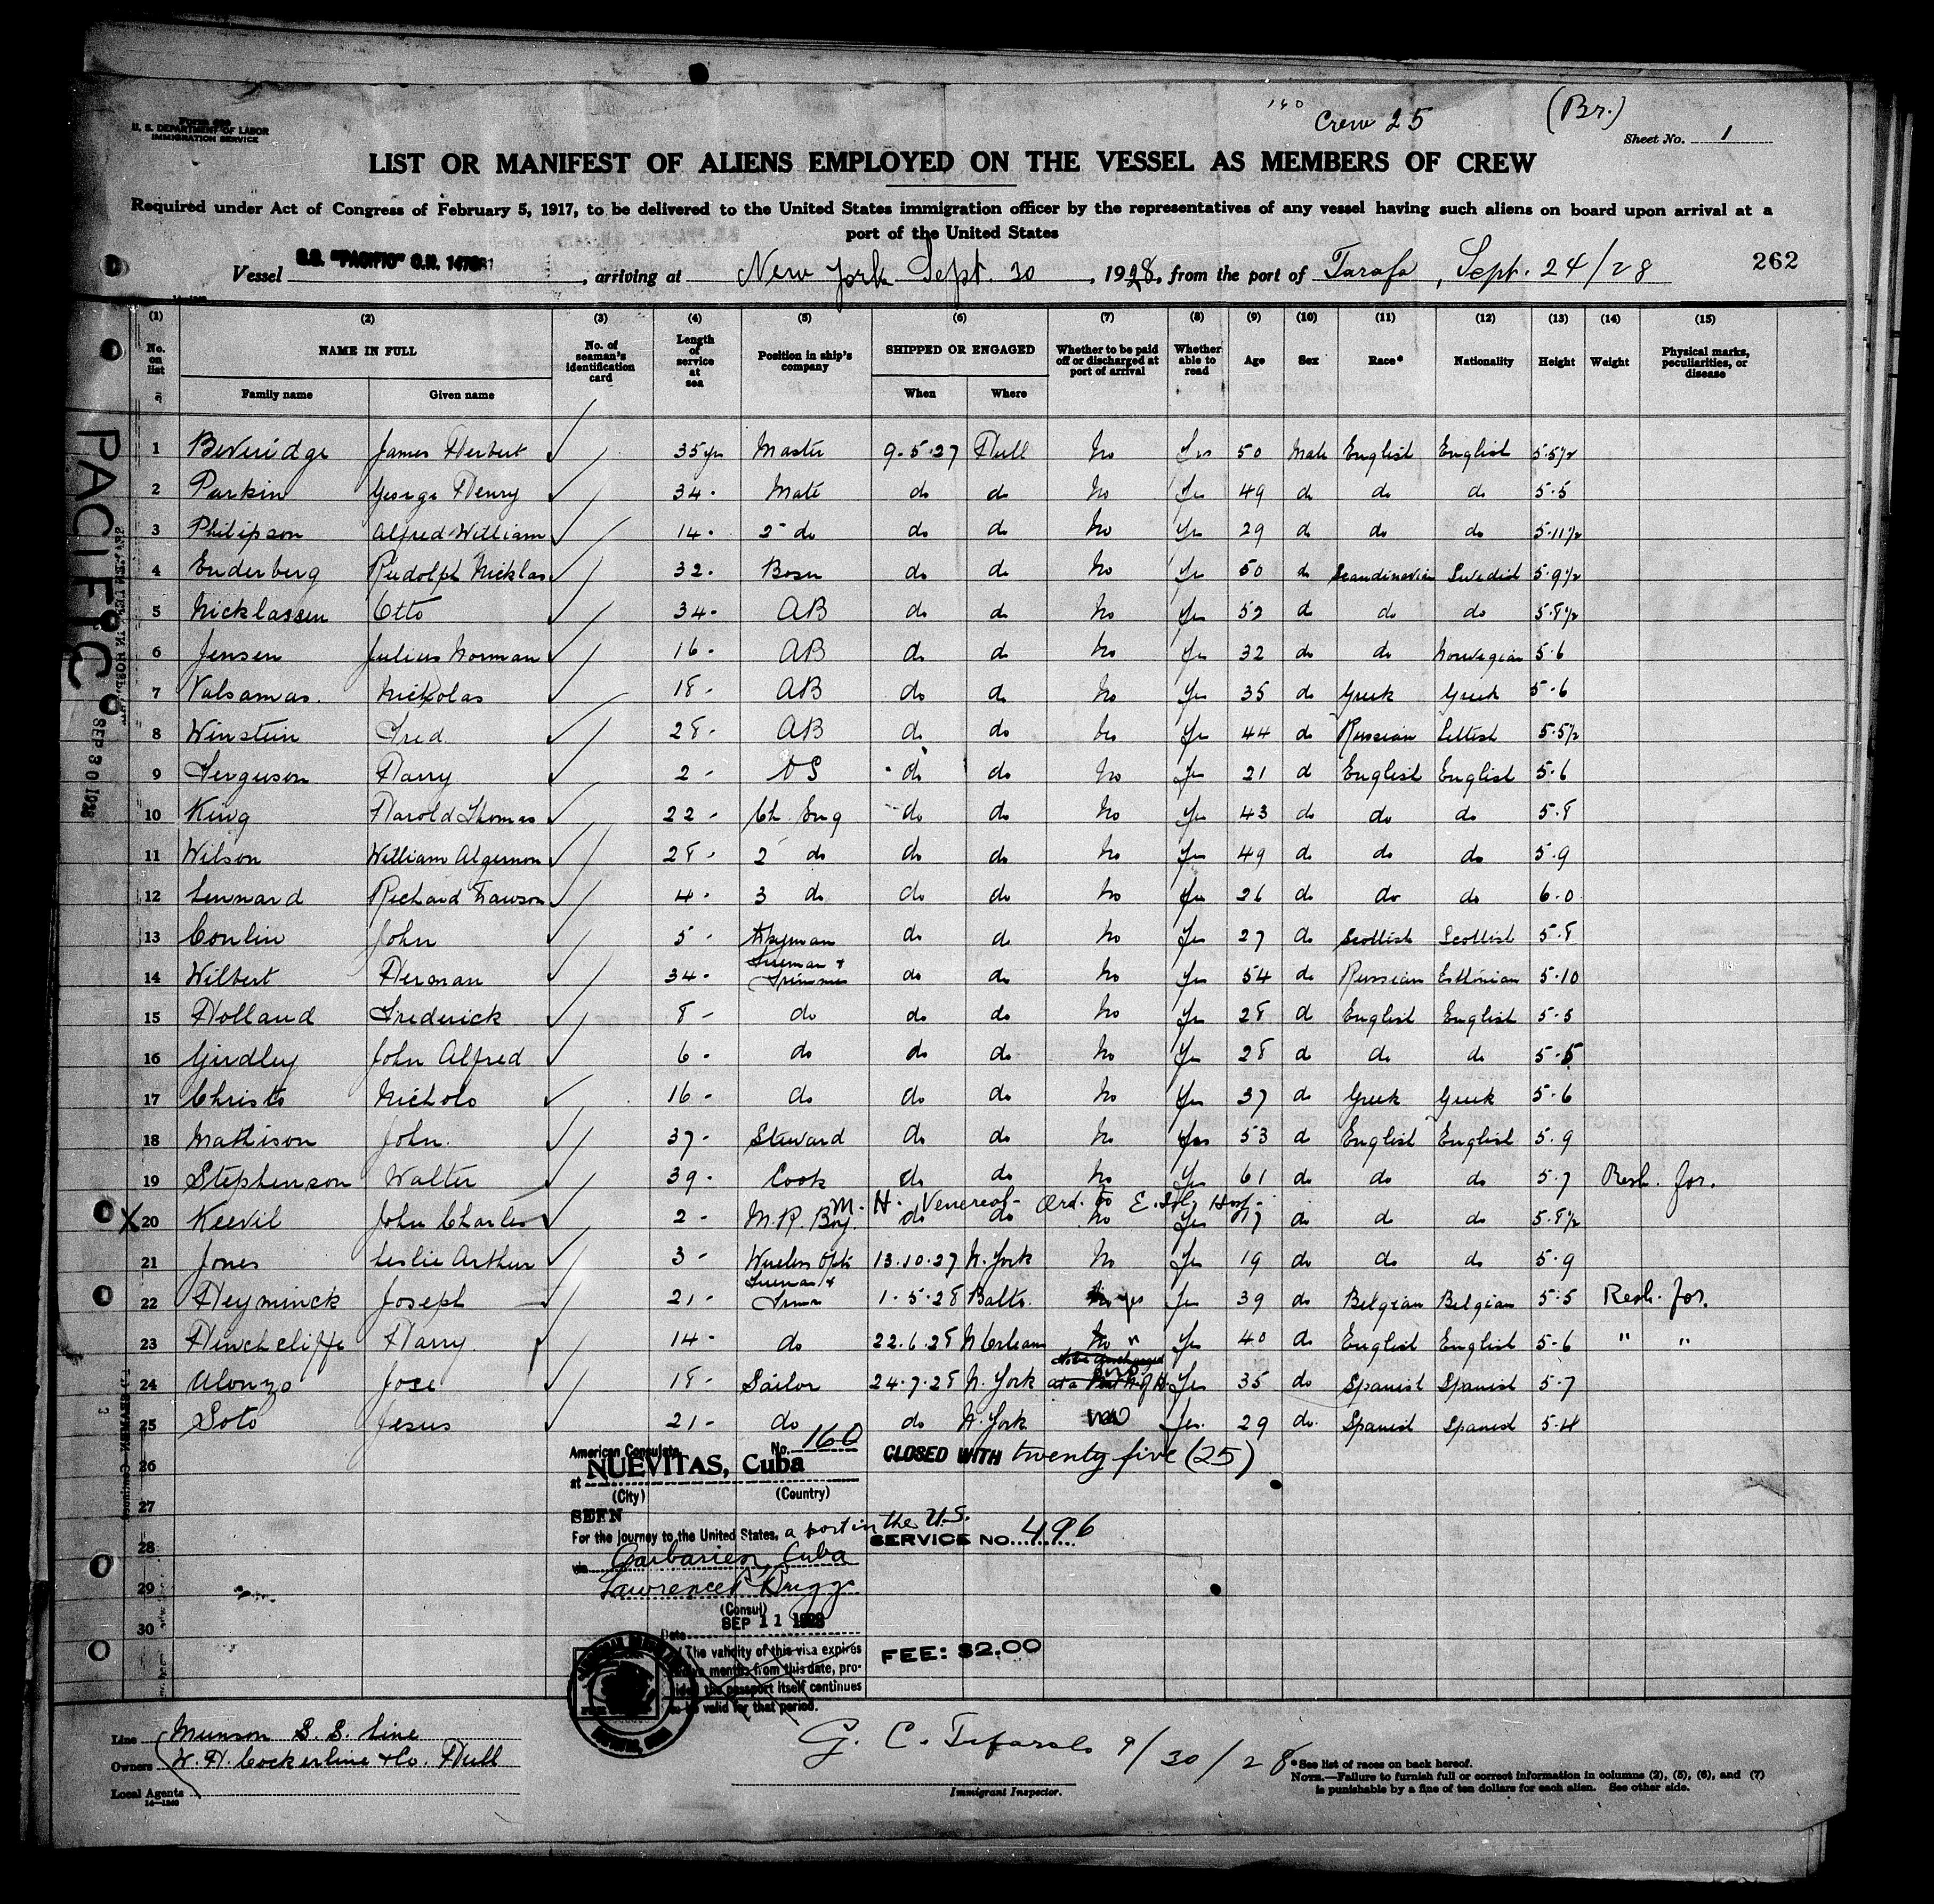 Form 680
U. S. DEPARTMENT OF LABOR
IMMIGRATION SERVICE
160
Crew 25
(Br.)
Sheet No. 1
LIST OR MANIFEST OF ALIENS EMPLOYED ON THE VESSEL AS MEMBERS OF CREW
Required under Act of Congress of February 5, 1917, to be delivered to the United States immigration officer by the representatives of any vessel having such aliens on board upon arrival at a
port of the United States
Vessel S.S. "PACIFIC" O.N., arriving at New York Sept. 30, 1928, from the port of Tarafa, Sept. 24/28
262
(1) (2) (3) (4) (5) (6) (7) (8) (9) (10) (11) (12) (13) (14) (15)
No. on list NAME IN FULL No. of seaman's identification card Length of service at sea Position in ship's company SHIPPED OR ENGAGED Whether to be paid off or discharged at port of arrival Whether able to read Age Sex Race* Nationality Height Weight Physical marks, peculiarities, or disease
Family name Given name When Where
1 Beveridge James Herbert 35 yrs Master 9.5.27 Hull No Yes 50 Male English English 5.5½
2 Parkin George Henry 34 Mate do do No Yes 49 do do do 5.5
3 Philipson Alfred William 14 2 do do do No Yes 29 do do do 5.11½
4 Enderberg Rudolph Nicklas 32 Bosn do do No Yes 50 do Scandinavian Swedish 5.9½
5 Nicklassen Otto 34 AB do do No Yes 52 do do do 5.8½
6 Jensen Julius Norman 16 AB do do No Yes 32 do do Norwegian 5.6
7 Valsamas. Nicholas 18 AB do do No Yes 35 do Greek Greek 5.6
8 Winstein Fred 28 AB do do No Yes 44 do Russian Lettish 5.5½
9 Ferguson Harry 2 OS do do No Yes 21 do English English 5.6
10 King Harold Thomas 22 Ch. Eng do do No Yes 43 do do do 5.8
11 Wilson William Algernon 28 2 do do do No Yes 49 do do do 5.9
12 Lennard Richard Fawson 4 3 do do do No Yes 26 do do do 6.0
13 Conlin John 5 do do No Yes 27 do Scottish Scottish 5.8
14 Wilbert Herman 34 Fireman + Trimmer do do No Yes 54 do Russian Esthonian 5.10
15 Holland Frederick 8 do do do No Yes 28 do English English 5.5
16 Girdley John Alfred 6 do do do No Yes 28 do do do 5.5
17 Christo Nicholo 16 do do do No Yes 37 do Greek Greek 5.6
18 Mathison John. 37 Steward do do No Yes 53 do English English 5.9
19 Stephenson Walter 39 Cook do do No Yes 61 do do do 5.7 Resh. for.
M. H. Venereal - Ord. to E. Isl. Hosp.
X 20 Keevil John Charles 2 M.R. Boy. do do No Yes 17 do do do 5.8½
21 Jones Leslie Arthur 3 Wireless Optr 13.10.27 N. York No Yes 19 do do do 5.9
22 Heyminck Joseph 21 Fireman + Trimr 1.5.28 Balto. yes Yes 39 do Belgian Belgian 5.5 Resh. for.
23 Hinchcliffe Harry 14 do 22.6.28 N Orleans No " Yes 40 do English English 5.6 " "
24 Alonzo Jose 18 Sailor 24.7.28 N. York Yes 35 do Spanish Spanish 5.7
25 Soto Jesus 21 do do N. York Yes. 29 do. Spanish Spanish 5.4
26
27
28
29
30
American Consulate No. 160
at NUEVITAS, Cuba
(City) (Country)
SEEN
For the journey to the United States, a port in the U.S.
via Caibarien, Cuba
Lawrence Briggs
(Consul)
Date SEP 11 1928
The validity of this visa expires
twelve months from this date, pro-
vided the passport itself continues
to be valid for that period.
CLOSED WITH twenty five (25)
SERVICE NO. 496
FEE: $2.00
PACIFIC
SEP 30 1928
Line Munson S. S. Line
Owners W. H. Cockerline & Co. Hull
Local Agents
14—1240
G. C. 9/30/28
Immigrant Inspector.
*See list of races on back hereof.
NOTE.—Failure to furnish full or correct information in columns (2), (5), (6), and (7)
is punishable by a fine of ten dollars for each alien. See other side.